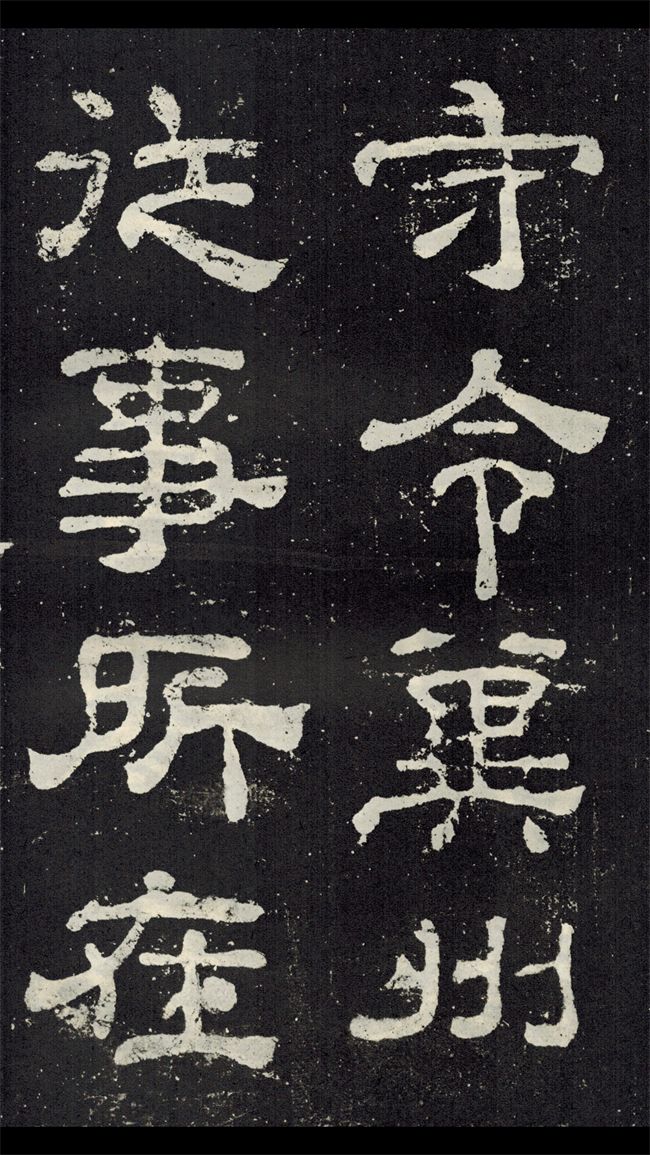 守令冀州
從事所在